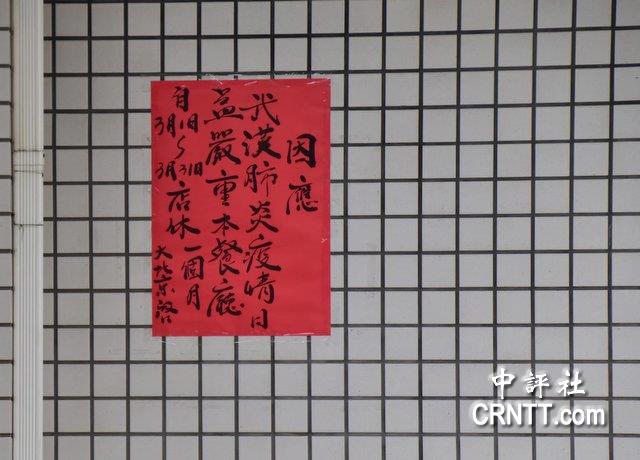 因應
武漢肺炎疫情日
益嚴重本餐廳
自3月1日~3月31日店休一個月
大北京啓
中評社
CRNTT.com